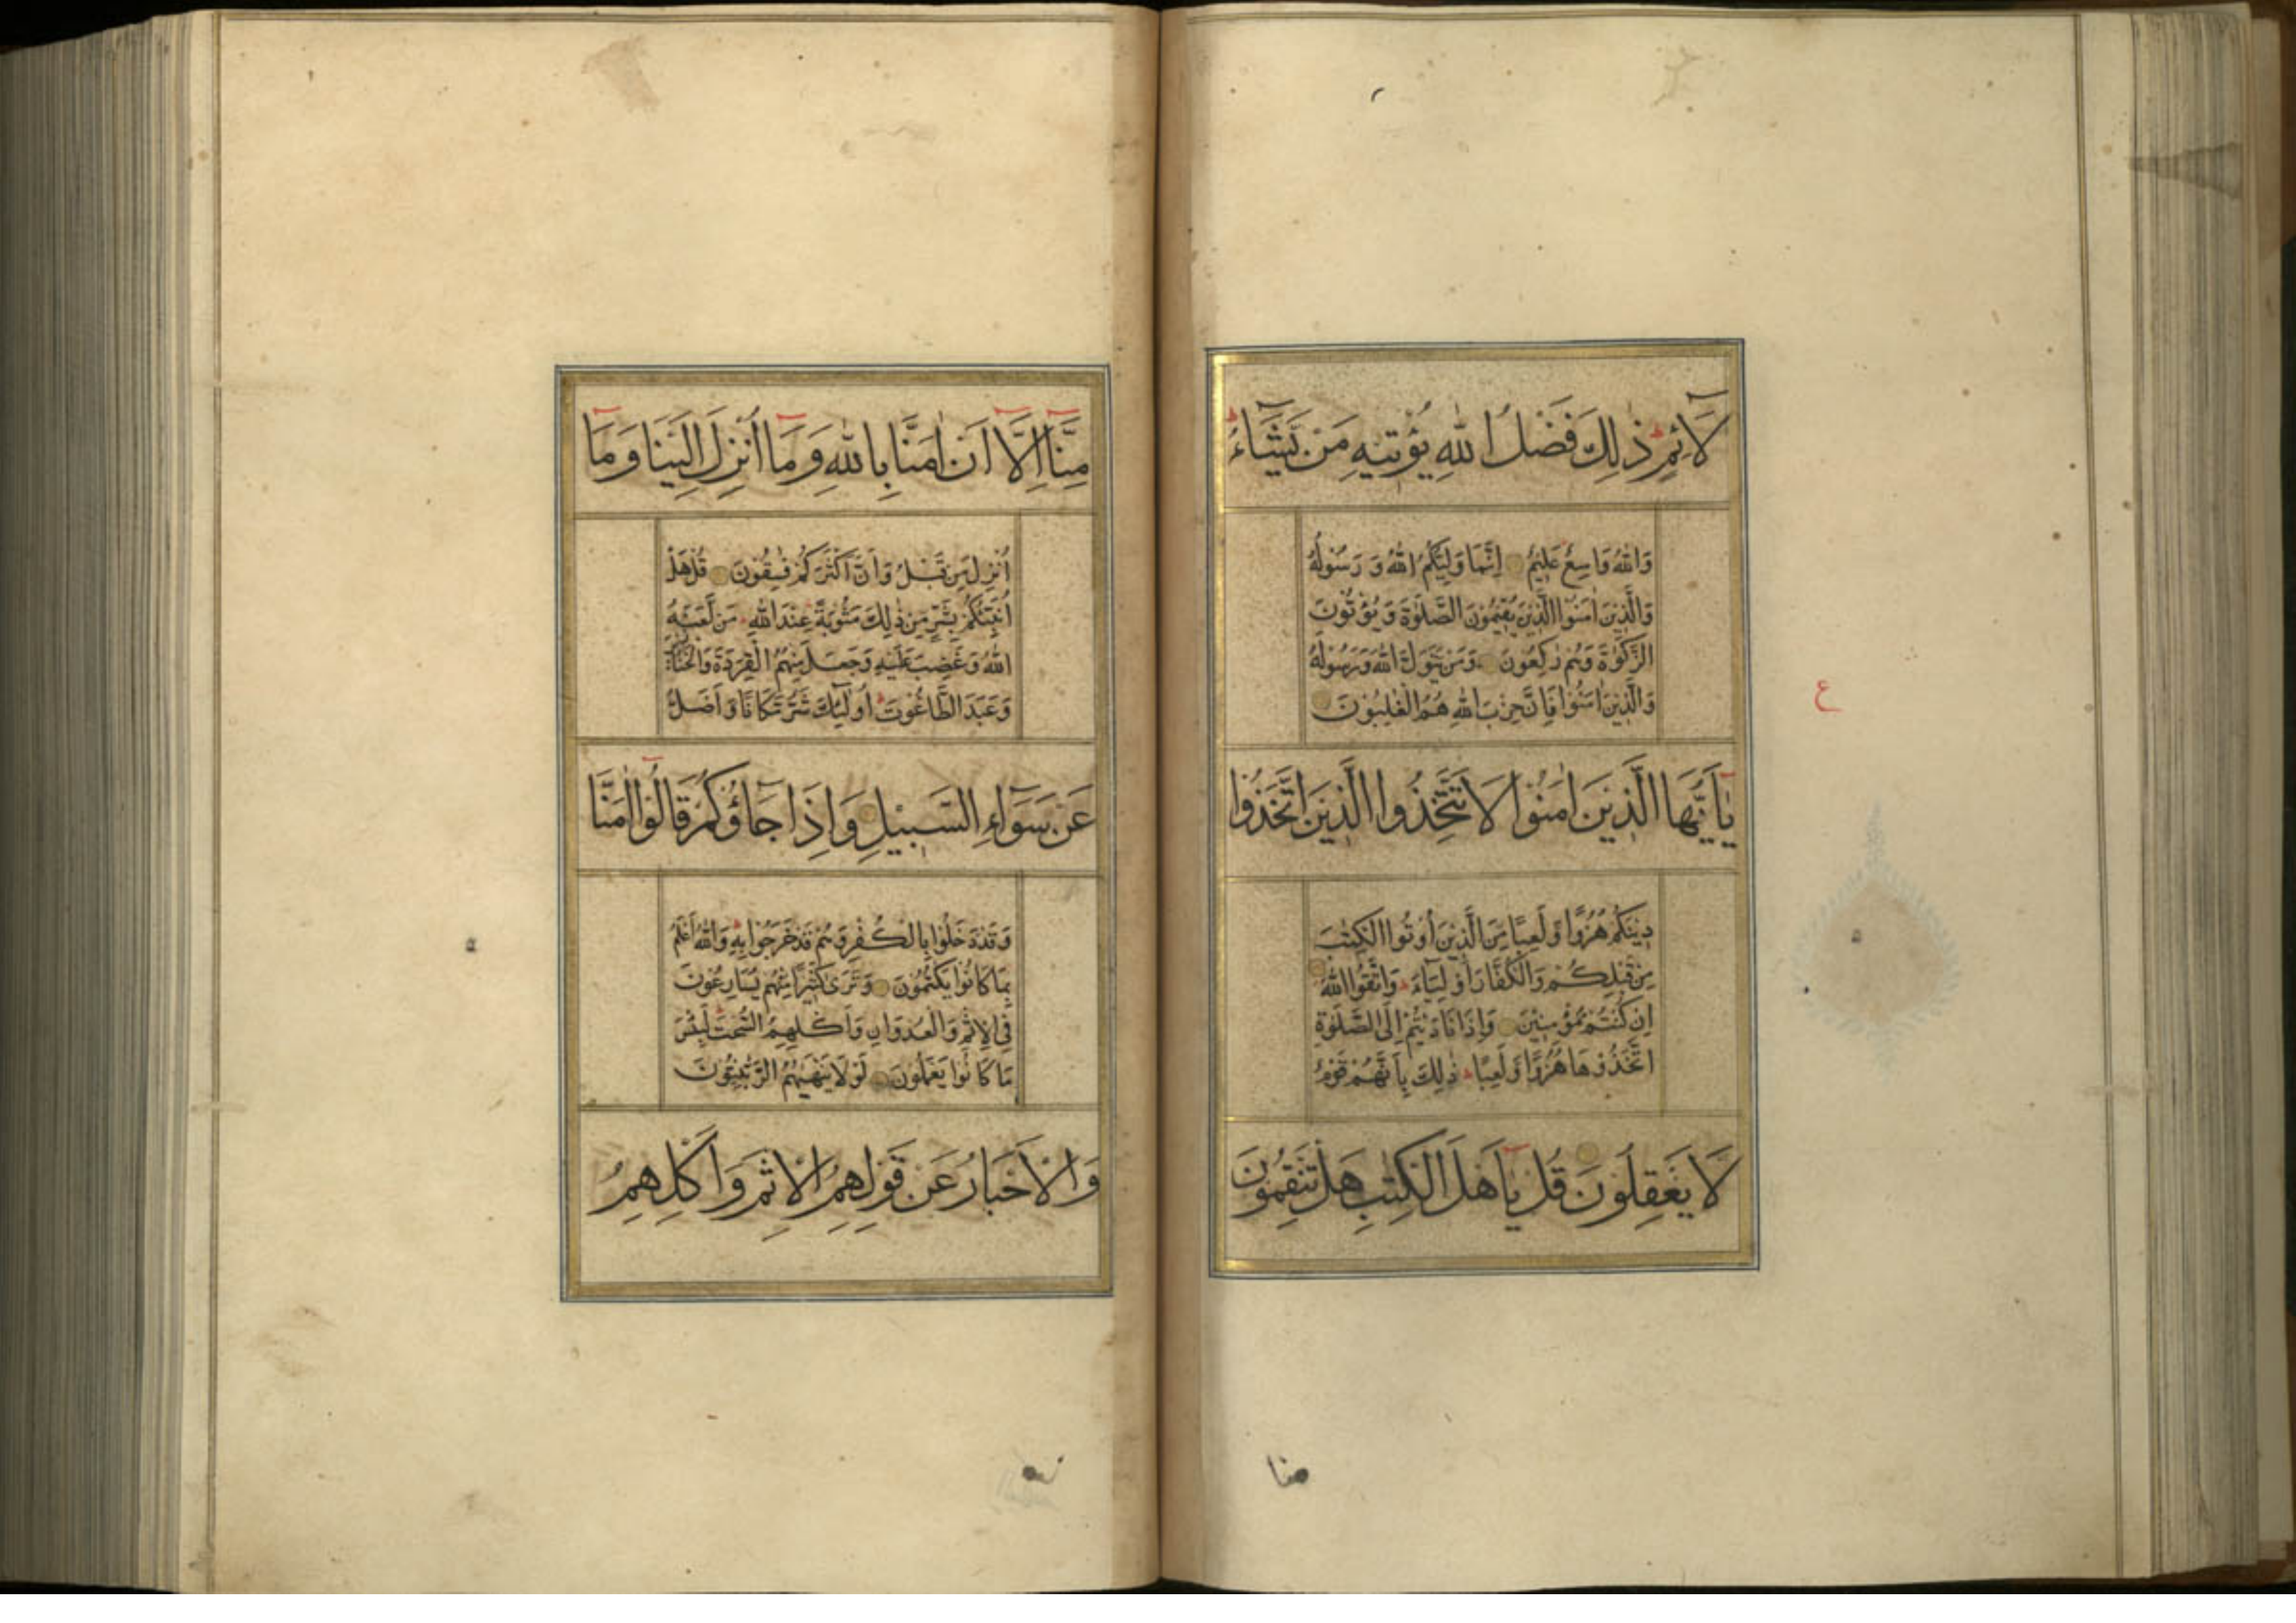 لَآئِمٍ ذٰلِكَ فَضْلُ اللّٰهِ يُؤْتِيْهِ مَنْ يَّشَآءُ
وَاللّٰهُ وَاسِعٌ عَلِيْمٌ اِنَّمَا وَلِيُّكُمُ اللّٰهُ وَرَسُوْلُهُ
وَالَّذِيْنَ اٰمَنُوا الَّذِيْنَ يُقِيْمُوْنَ الصَّلٰوةَ وَيُؤْتُوْنَ
الزَّكٰوةَ وَهُمْ رٰكِعُوْنَ وَمَنْ يَّتَوَلَّ اللّٰهَ وَرَسُوْلَهُ
وَالَّذِيْنَ اٰمَنُوْا فَاِنَّ حِزْبَ اللّٰهِ هُمُ الْغٰلِبُوْنَ
يٰٓاَيُّهَا الَّذِيْنَ اٰمَنُوْا لَا تَتَّخِذُوا الَّذِيْنَ اتَّخَذُوْا
دِيْنَكُمْ هُزُوًا وَّلَعِبًا مِّنَ الَّذِيْنَ اُوْتُوا الْكِتٰبَ
مِنْ قَبْلِكُمْ وَالْكُفَّارَ اَوْلِيَآءَ وَاتَّقُوا اللّٰهَ
اِنْ كُنْتُمْ مُّؤْمِنِيْنَ وَاِذَا نَادَيْتُمْ اِلَى الصَّلٰوةِ
اتَّخَذُوْهَا هُزُوًا وَّلَعِبًا ذٰلِكَ بِاَنَّهُمْ قَوْمٌ
لَّا يَعْقِلُوْنَ قُلْ يٰٓاَهْلَ الْكِتٰبِ هَلْ تَنْقِمُوْنَ
منا
ع
مِنَّآ اِلَّآ اَنْ اٰمَنَّا بِاللّٰهِ وَمَآ اُنْزِلَ اِلَيْنَا وَمَآ
اُنْزِلَ مِنْ قَبْلُ وَاَنَّ اَكْثَرَكُمْ فٰسِقُوْنَ قُلْ هَلْ
اُنَبِّئُكُمْ بِشَرٍّ مِّنْ ذٰلِكَ مَثُوْبَةً عِنْدَ اللّٰهِ مَنْ لَّعَنَهُ
اللّٰهُ وَغَضِبَ عَلَيْهِ وَجَعَلَ مِنْهُمُ الْقِرَدَةَ وَالْخَنَازِيْرَ
وَعَبَدَ الطَّاغُوْتَ اُولٰٓئِكَ شَرٌّ مَّكَانًا وَّاَضَلُّ
عَنْ سَوَآءِ السَّبِيْلِ وَاِذَا جَآؤُكُمْ قَالُوْٓا اٰمَنَّا
وَقَدْ دَخَلُوْا بِالْكُفْرِ وَهُمْ قَدْ خَرَجُوْا بِهٖ وَاللّٰهُ اَعْلَمُ
بِمَا كَانُوْا يَكْتُمُوْنَ وَتَرٰى كَثِيْرًا مِّنْهُمْ يُسَارِعُوْنَ
فِى الْاِثْمِ وَالْعُدْوَانِ وَاَكْلِهِمُ السُّحْتَ لَبِئْسَ
مَا كَانُوْا يَعْمَلُوْنَ لَوْلَا يَنْهٰهُمُ الرَّبّٰنِيُّوْنَ
وَالْاَحْبَارُ عَنْ قَوْلِهِمُ الْاِثْمَ وَاَكْلِهِمُ